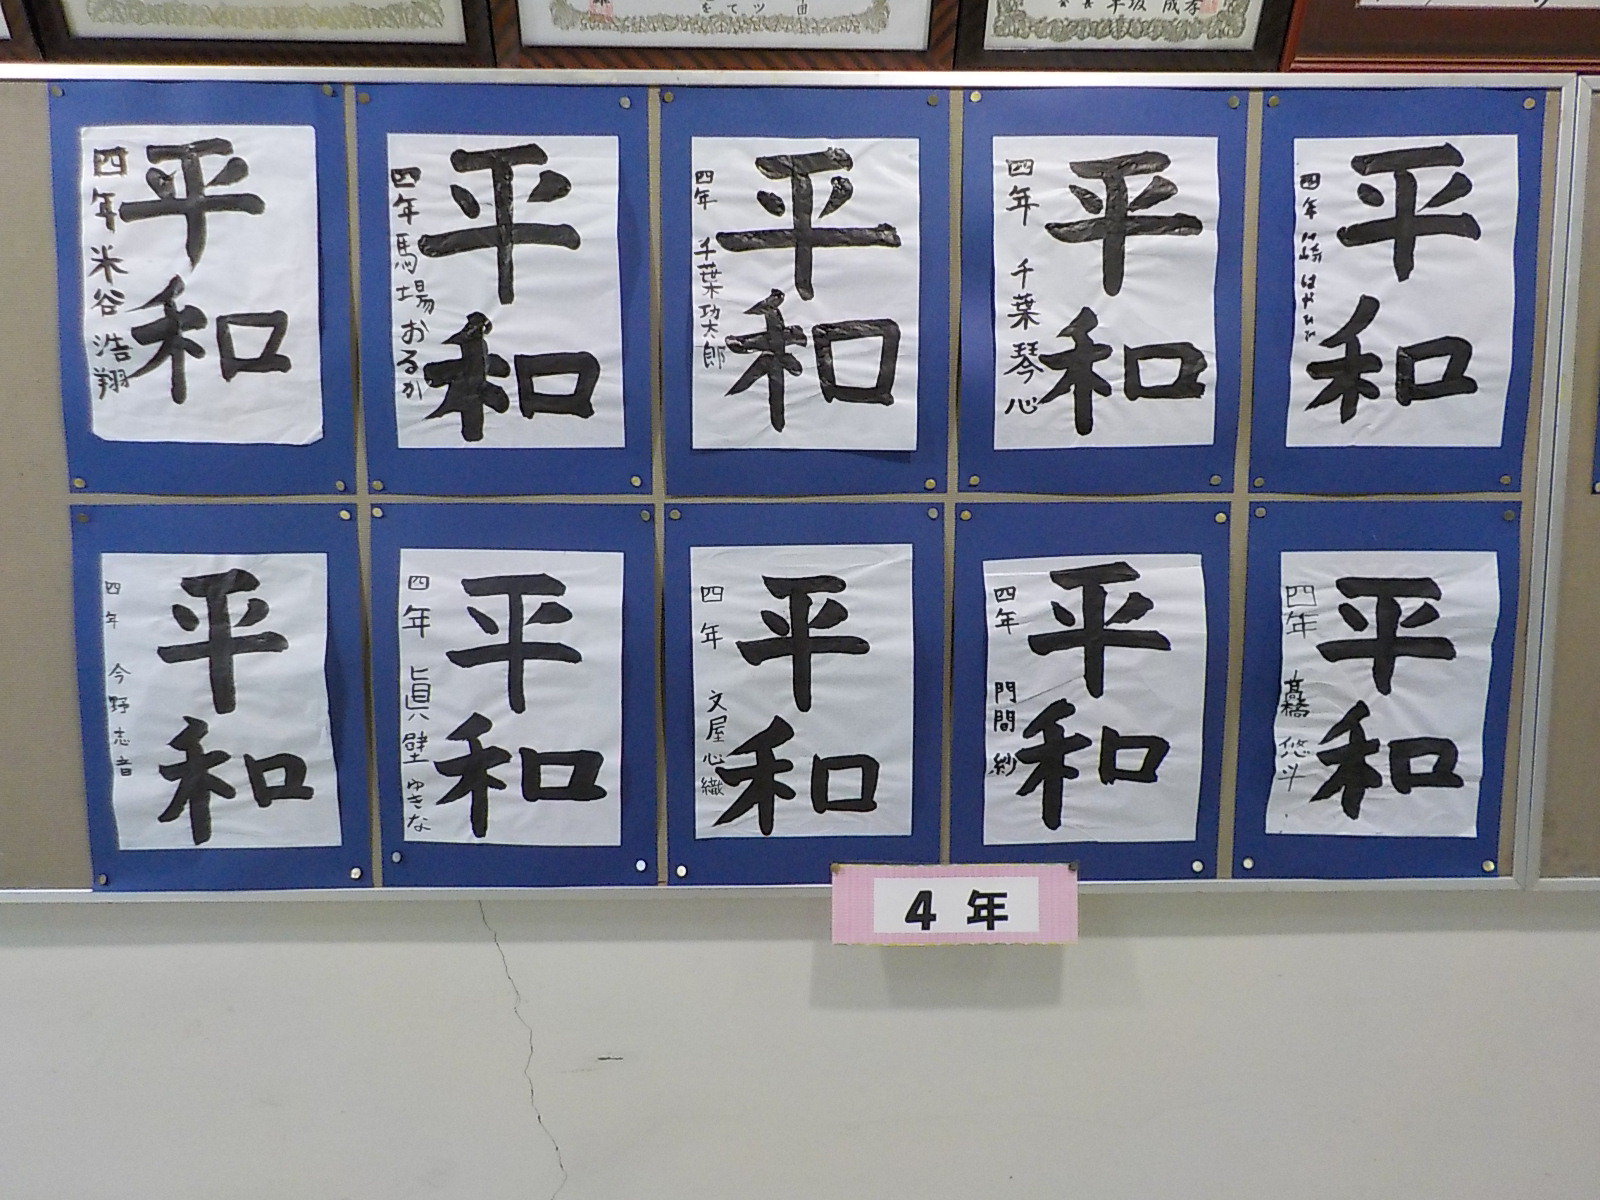 平和
四年 米谷 浩翔
平和
四年 馬場おるか
平和
四年 千葉功太郎
平和
四年 千葉 琴心
平和
四年
平和
四年 今野志音
平和
四年 眞壁 ゆきな
平和
四年 文屋心織
平和
四年 門間 紗
平和
四年 髙橋 悠斗
4年